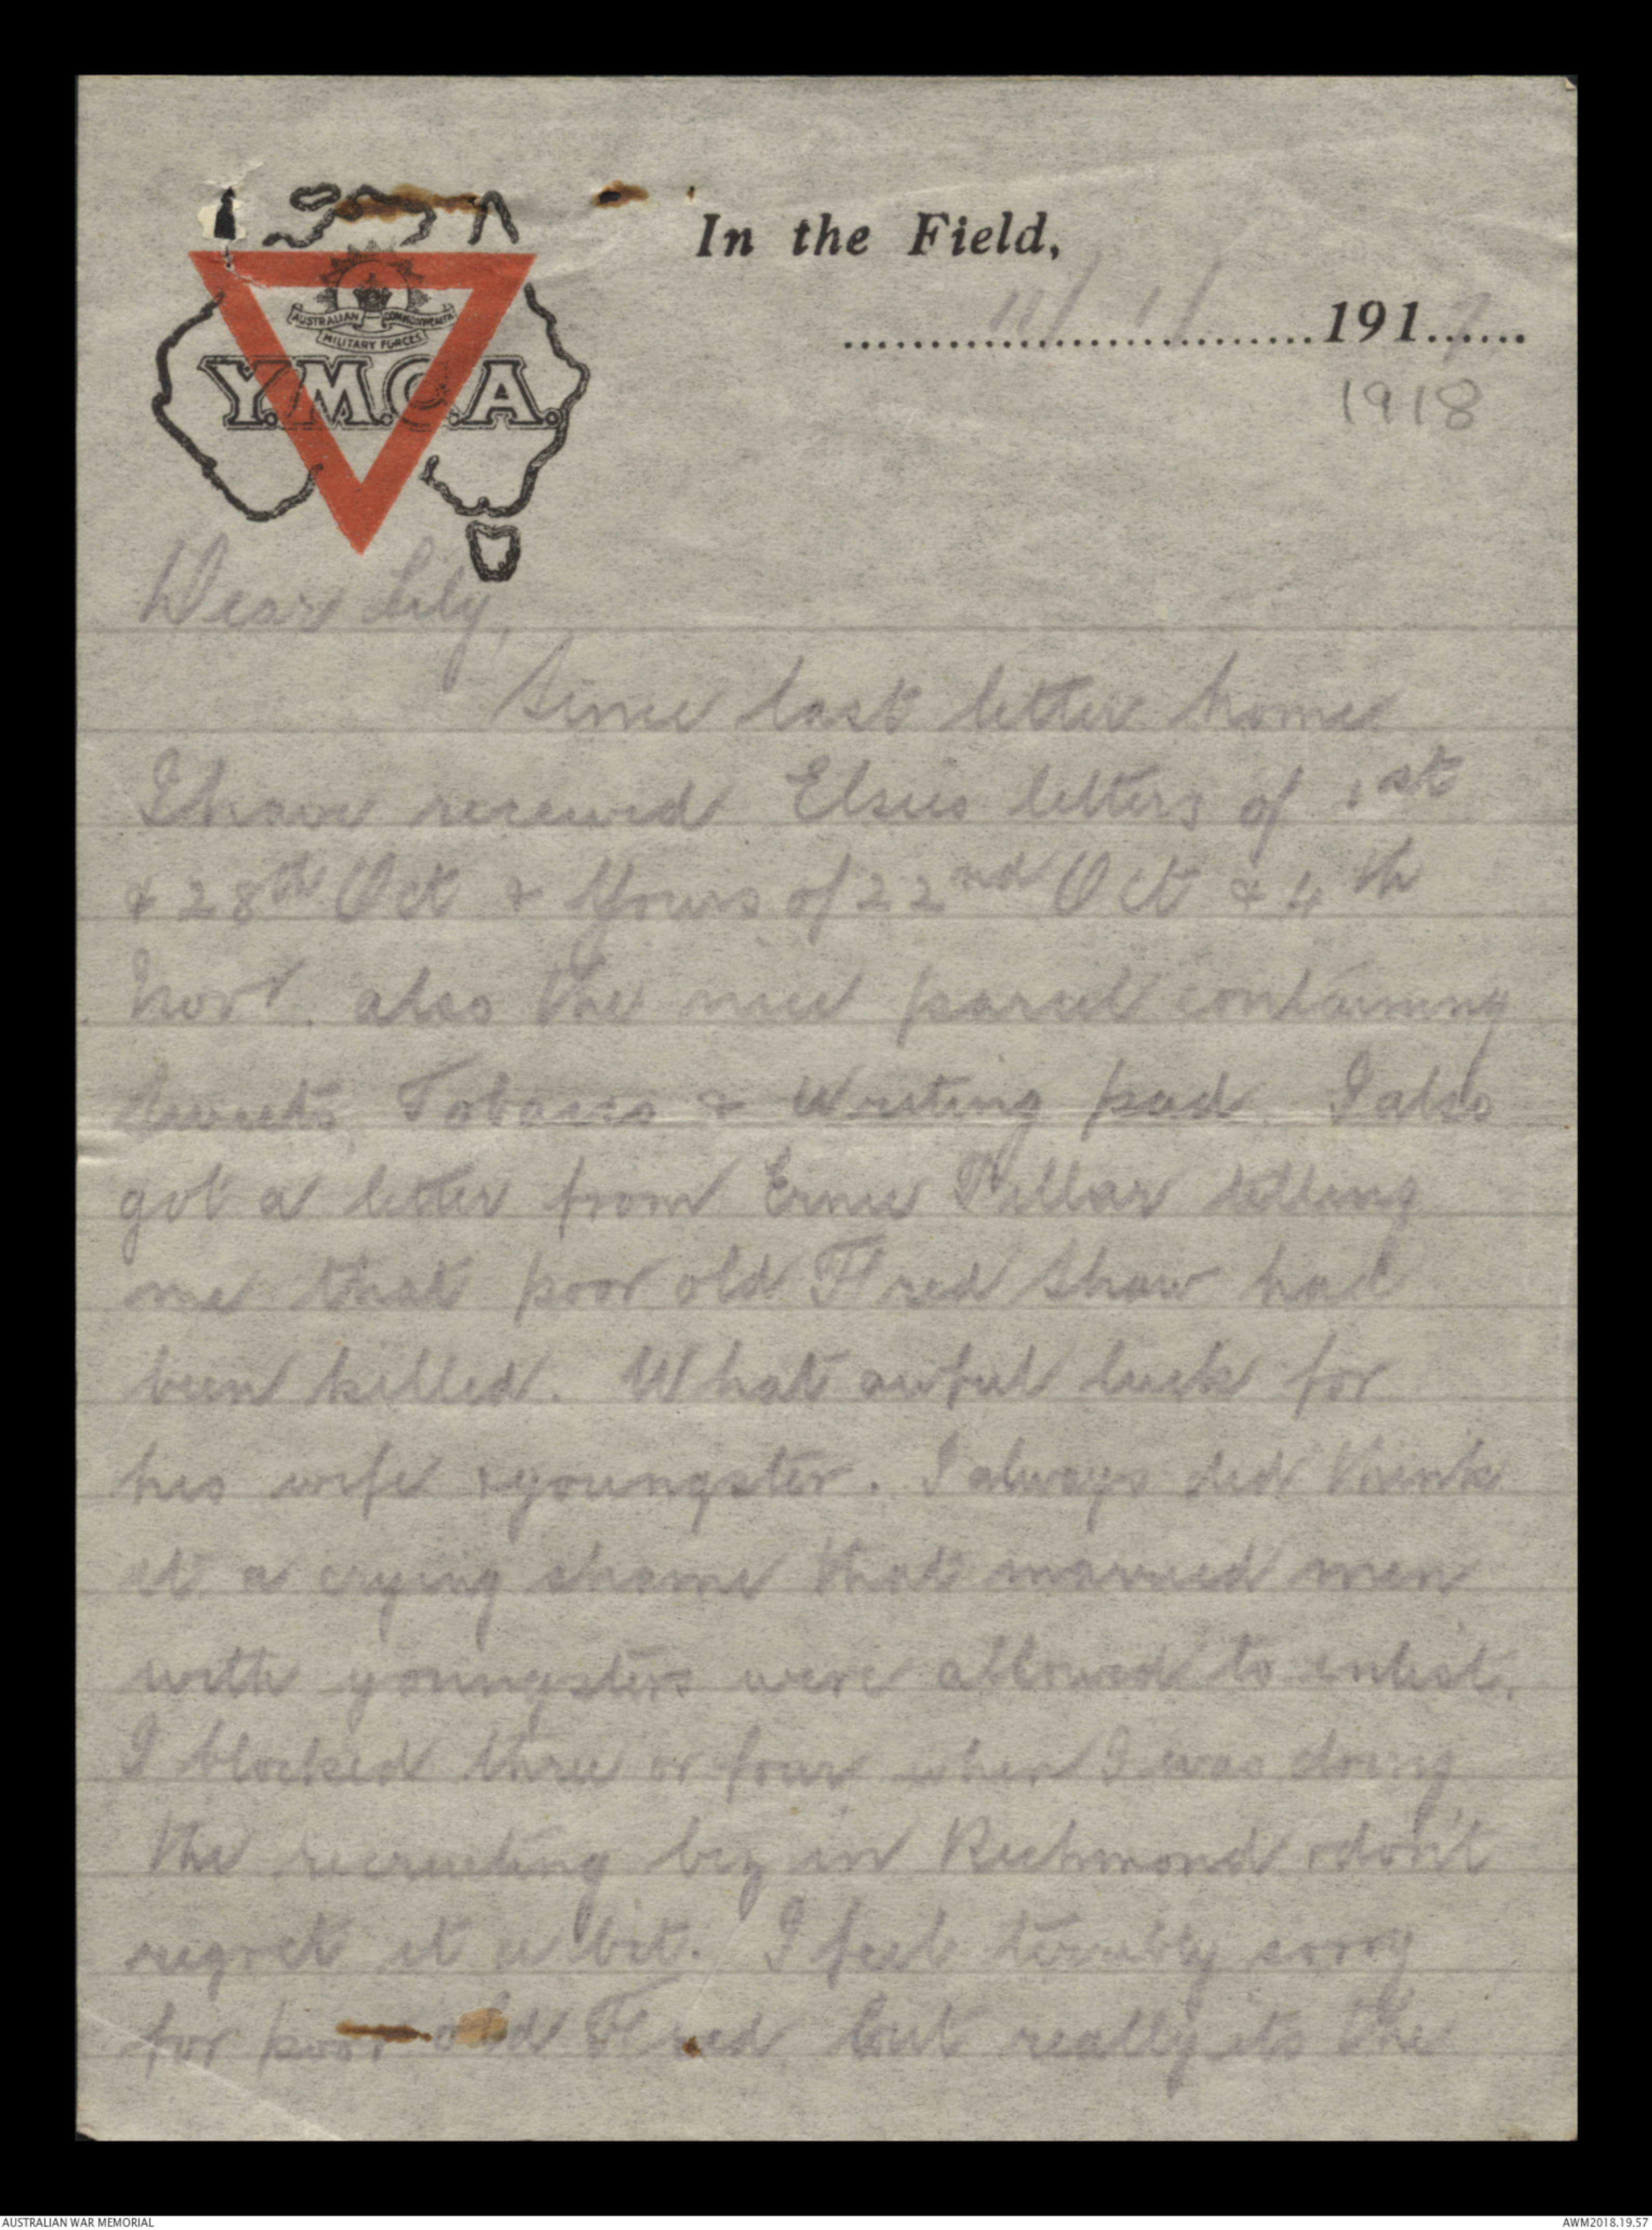 In the Field,
11/1/1917
1918
AUSTRALIAN COMMONWEALTH
MILITARY FORCES
Y.M.C.A.
Dear Lily,
Since last letter home
I have received Elsies letters of 1st
& 28th Oct & Yours of 22nd Oct & 4th
Novr. also the nice parcel containing
Sweets, Tobacco & Writing pad. I also
got a letter from Ernie Tillar telling
me that poor old Fred Shaw had
been killed. What awful luck for
his wife & youngster. I always did think
it a crying shame that married men
with youngsters were allowed to enlist.
I blocked three or four when I was doing
the recruiting biz in Richmond & don't
regret it a bit. I feel terribly sorry
for poor old Fred but really its the
AUSTRALIAN WAR MEMORIAL
AWM2018.19.57